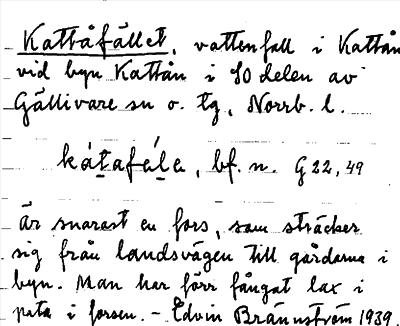 Kattåfället, vattenfall i Kattån
vid byn Kattån i SO delen av
Gällivare sn o. tg, Norrb. l.
kátafäl̀e, bf. n. G22,49
Är snarast en fors, som sträcker
sig från landsvägen till gårdarna i
byn. Man har förr fångat lax i
pata i forsen. – Edvin Brännström 1939.